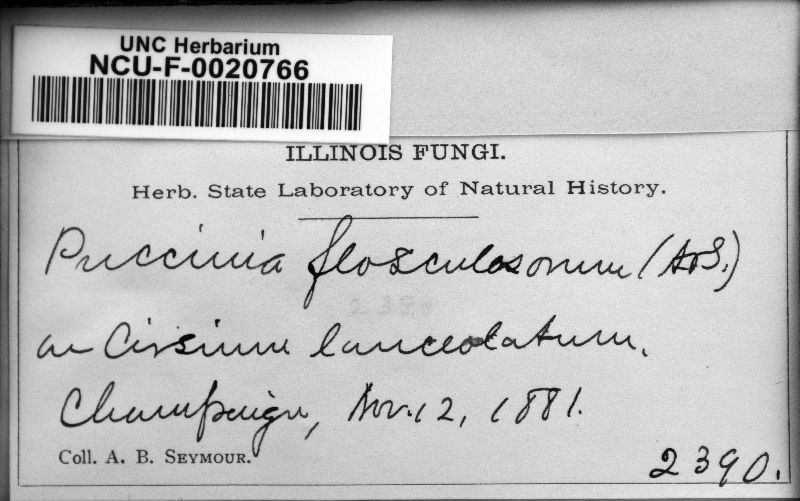 UNC Herbarium
NCU-F-0020766
ILLINOIS FUNGI.
Herb. State Laboratory of Natural History.
Puccinia flosculosorum (A&S.)
2390
on Cirsium lanceolatum.
Champaign, Nov. 12, 1881.
Coll. A. B. SEYMOUR.
2390.